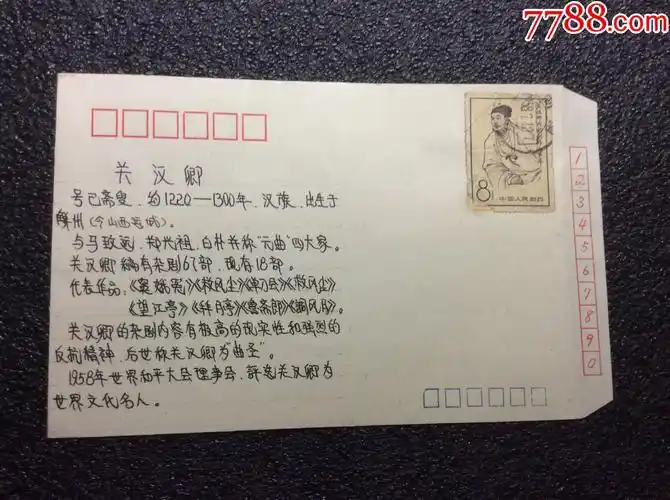 7788.com
8
中国人民邮政
1
2
3
4
5
6
7
8
9
0
关汉卿
号已斋叟、约1220—1300年、汉族、出生于
解州(今山西运城)
与马致远、郑光祖、白朴并称"元曲"四大家。
关汉卿编有杂剧67部,现存18部。
代表作品:《窦娥冤》《救风尘》《单刀会》《救风尘》
《望江亭》《拜月亭》《鲁斋郎》《调风月》。
关汉卿的杂剧内容有极高的现实性和强烈的
反抗精神,后世称关汉卿为"曲圣"。
1958年世界和平大会理事会、评选关汉卿为
世界文化名人。